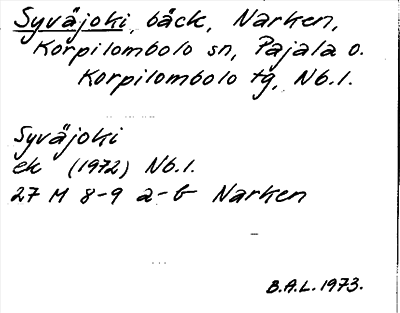 Syväjoki, bäck, Narken,
Korpilombolo sn, Pajala o.
Korpilombolo tg, Nb.l.
Syväjoki
ek (1972) Nb.l.
27 M 8-9 a-b Narken
B.A.L. 1973.